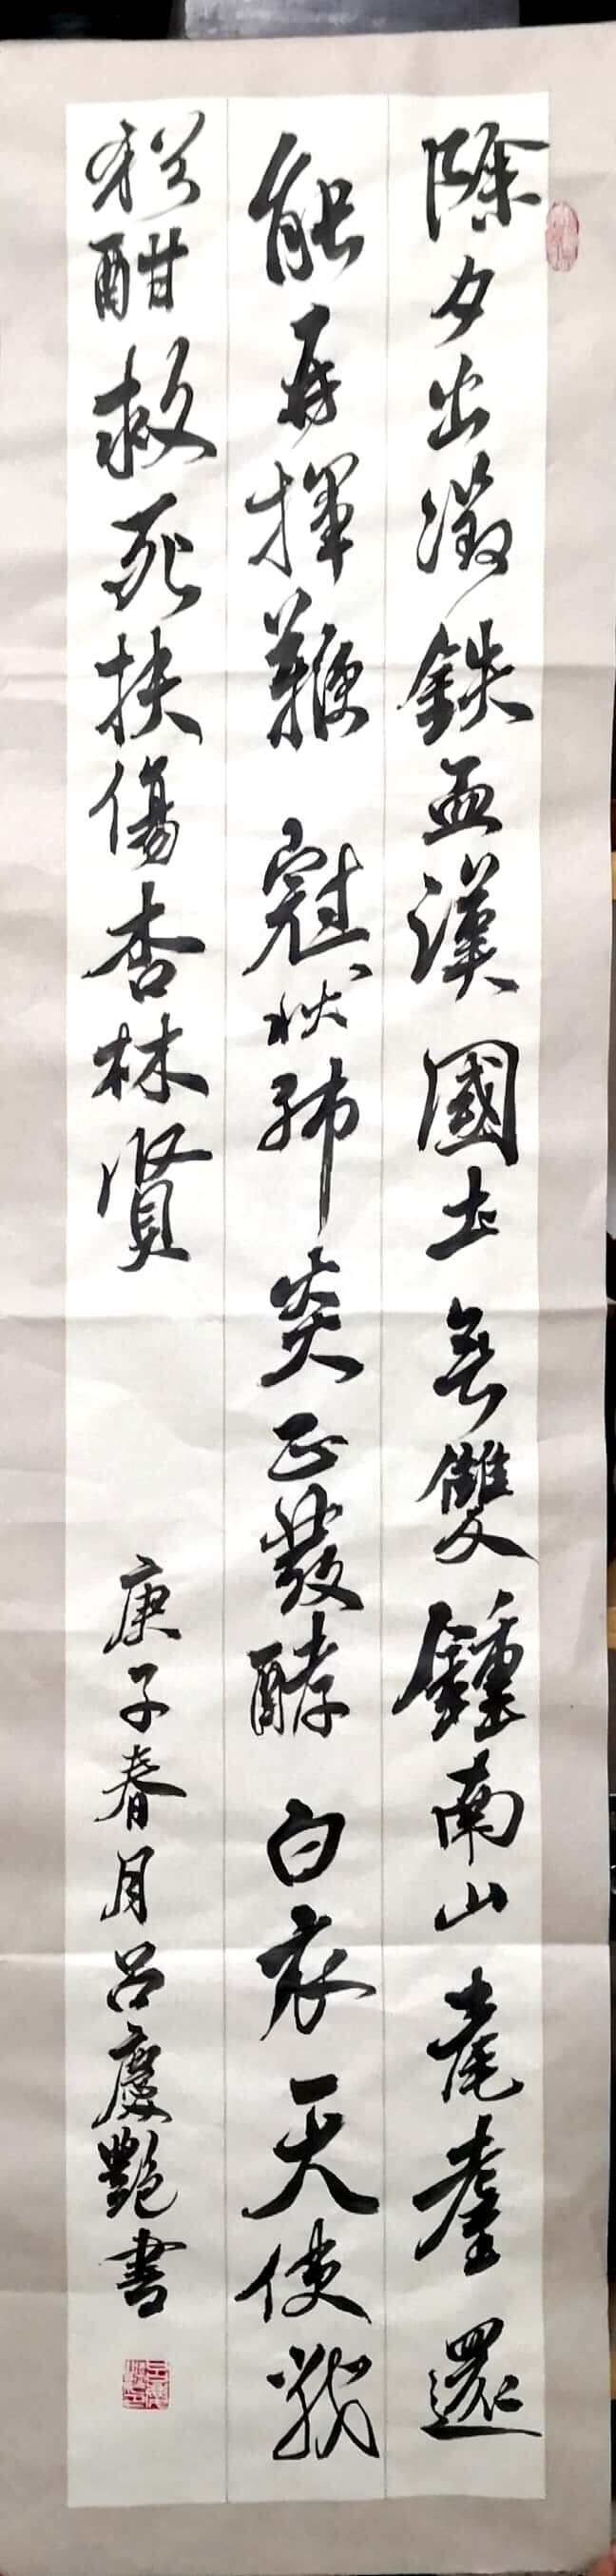 除夕出徵鉄血漢國士無雙鍾南山耄耋還
能再揮鞭冠狀肺炎正發酵白衣天使戰
猶酣救死扶傷杏林賢
庚子春月呂慶艷書